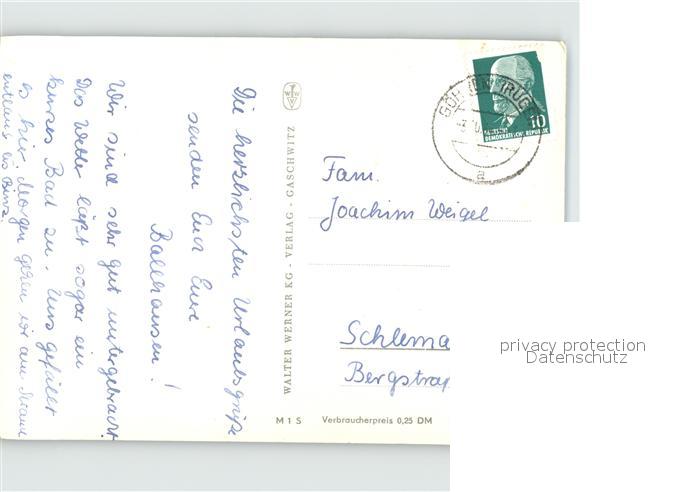 Die herzlichsten Urlaubsgrüße
senden Euch Eure
Ballhausen!
Wir sind sehr gut untergebracht.
Das Wetter läßt sogar ein
kurzes Bad zu. Uns gefällt
es hier. Morgen gehen wir am Strand
entlang bis Binz.
WALTER WERNER KG - VERLAG - GASCHWITZ
Fam.
Joachim Weigel
Schlema
Bergstraß
M 1 S Verbraucherpreis 0,25 DM
10
DEUTSCHE
DEMOKRATISCHE REPUBLIK
GÖHREN (RÜGEN)
a
privacy protection
Datenschutz